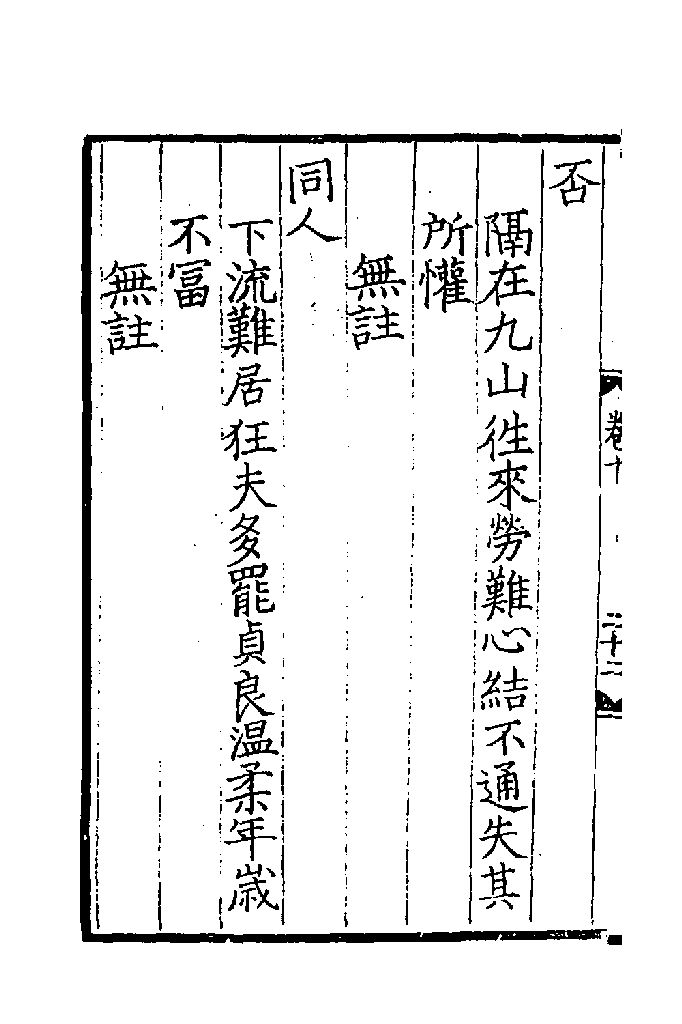 否
隔在九山徃來勞難心結不通失其
所懽
無註
同人
下流難居狂夫多罷貞良温柔年歳
不冨
無註
卷十
二十二